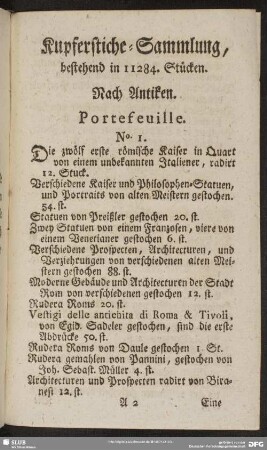 Kupferstiche-Sammlung,
bestehend in 11284. Stücken.
Nach Antiken.
Portefeuille.
No. 1.
Die zwölf erste römische Kaiser in Quart
von einem unbekannten Italiener, radirt
12. Stuck.
Verschiedene Kaiser und Philosophen-Statuen,
und Portraits von alten Meistern gestochen.
54. st.
Statuen von Preißler gestochen 20. st.
Zwey Statuen von einem Franzosen, viere von
einem Venetianer gestochen 6. st.
Verschiedene Prospecten, Architecturen, und
Verziehrungen von verschiedenen alten Mei-
stern gestochen 88. st.
Moderne Gebäude und Architecturen der Stadt
Rom von verschiedenen gestochen 12. st.
Rudera Roms 20. st.
Vestigi delle antichita di Roma & Tivoli,
von Egid. Sadeler gestochen, sind die erste
Abdrücke 50. st.
Rudera Roms von Daule gestochen 1. St.
Rudera gemahlen von Pannini, gestochen von
Joh. Sebast. Müller 4. st.
Architecturen und Prospecten radirt von Pira-
nesi 12. st.
A 2 Eine
SLUB
DFG